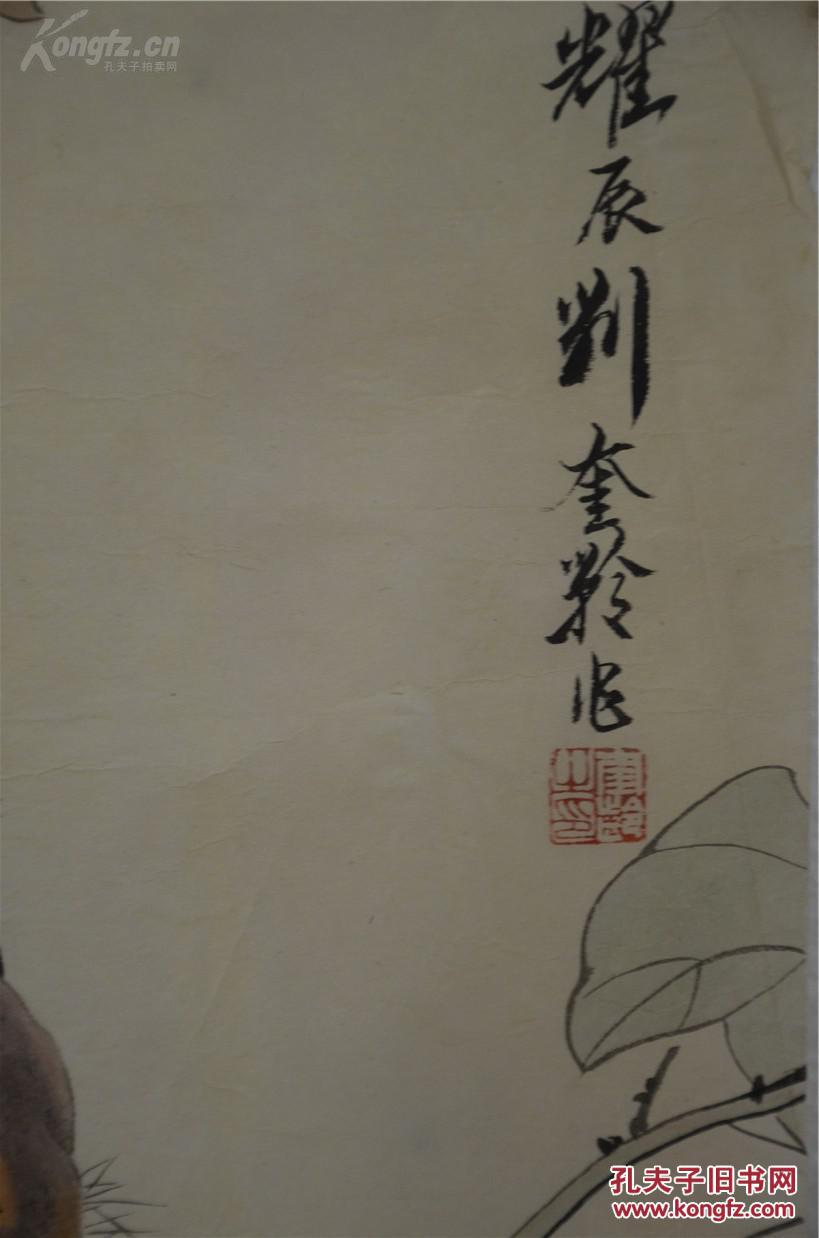 Kongfz.cn
孔夫子拍卖网
耀辰劉奎齡作
奎齡之印
孔夫子旧书网
www.kongfz.com